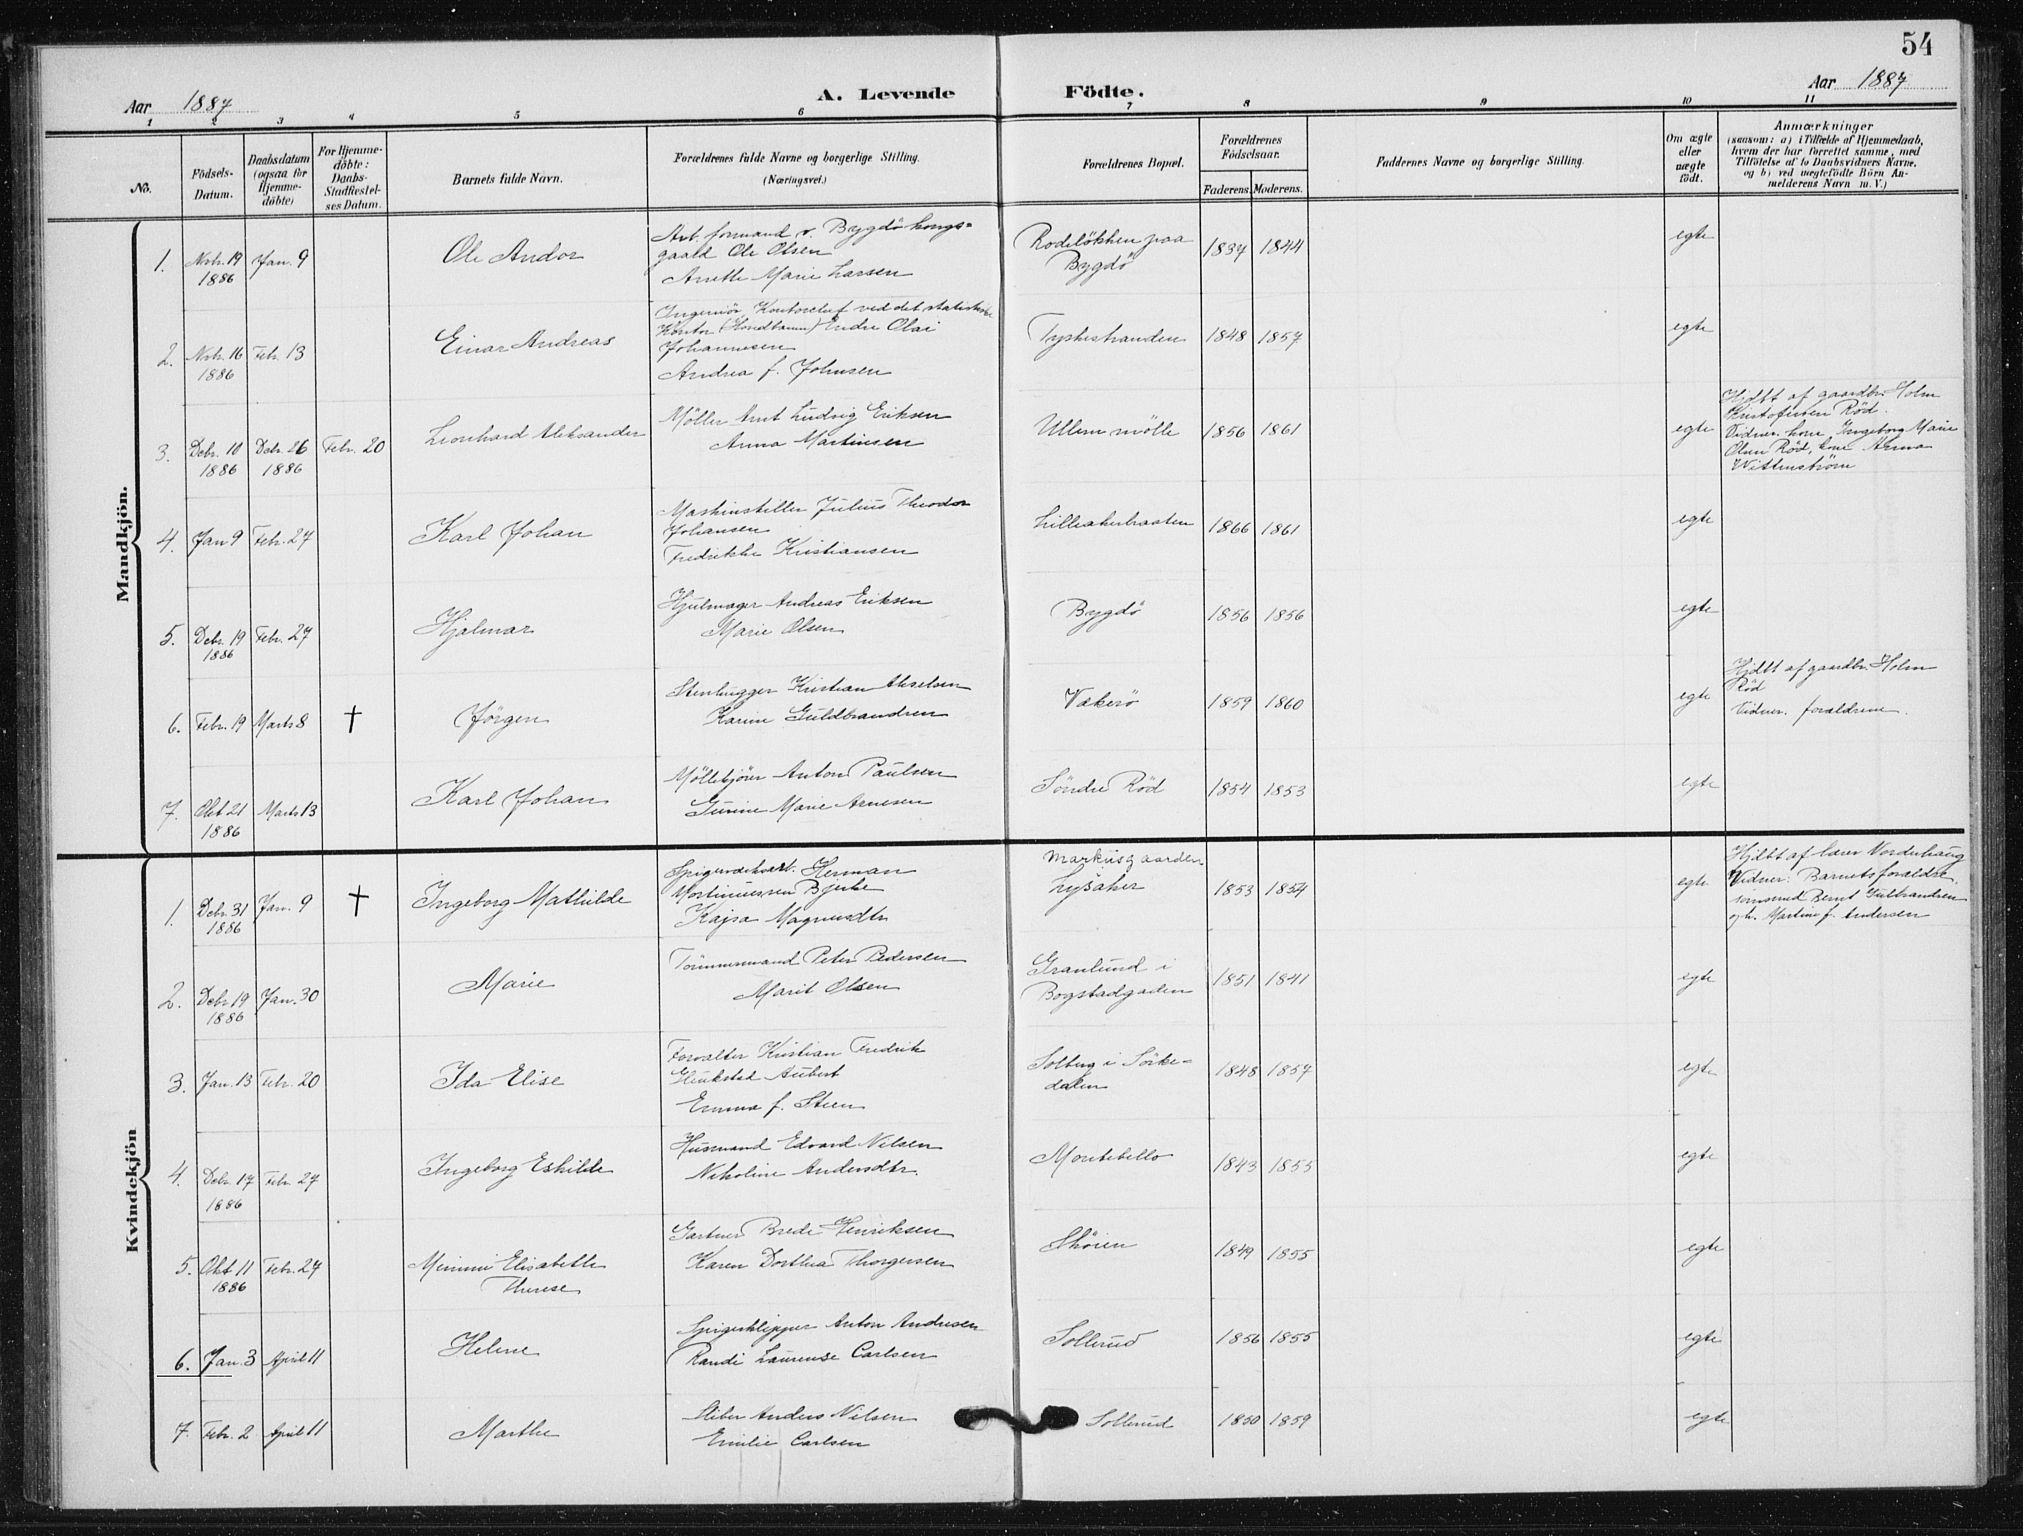 54
Aar 1887
A. Levende Födte.
Aar 1887
1 2 3 4 5 6 7 8 9 10 11
No.
Födsels-
Datum.
Daabsdatum
(ogsaa for
Hjemme-
döbte)
For Hjemme-
döbte:
Daabs-
Stadfæstel-
ses Datum.
Barnets fulde Navn.
Forældrenes fulde Navne og borgerlige Stilling.
(Næringsvei.)
Forældrenes Bopæl.
Forældrenes
Födselsaar.
Faderens. Moderens.
Faddernes Navne og borgerlige Stilling.
Om ægte
eller
uægte
födt.
Anmærkninger
(saasom: a) i Tilfælde af Hjemmedaab,
hvem der har forrettet samme, med
Tilföielse af to Daabsvidners Navne,
og b) ved uægtefödte Börn An-
melderens Navn m. V.)
Mandkjön.
1. Novb. 19 1886 Jan. 9
Ole Andor
Arb. formand v. Bygdö kongs-
gaard Ole Olsen
Anette Marie Larsen
Rodelökken paa
Bygdö
1837 1844
egte
2. Novb. 16 1886 Febr. 13
Einar Andreas
Ingeniör, Kontorchef ved det statistiske
Kontor Endre Olai
Johannesen
Andrea f. Johnsen
Tyskestranden
1848 1857
egte
3. Debr. 10 1886 Debr. 26 1886 Febr. 20
Leonhard Aleksander
Möller Arnt Ludvig Eriksen
Anna Martinsen
Ullern mölle
1856 1861
egte
Hjdbt af gaardbr. Holm
Kristofersen Röd.
Vidner: kone Ingeborg Marie
Olsen Röd, kone Anna
Wittenström
4. Jan 9 Febr. 27
Karl Johan
Maskinstiller Julius Theodor
Johansen
Fredrikke Kristiansen
Lilleakerbraaten
1866 1861
egte
5. Debr. 19 1886 Febr. 27
Hjalmar
Hjulmager Andreas Eriksen
Marie Olsen
Bygdö
1856 1856
egte
6. Febr. 19 Marts 8 †
Jörgen
Stenhugger Kristian Akselsen
Karine Guldbrandsen
Vækerö
1859 1860
egte
Hjdbt af gaardbr. Holm
Röd
Vidner: forældrene.
7. Okt 21 1886 Marts 13
Karl Johan
Möllekjörer Anton Paulsen
Gurine Marie Arnesen
Söndre Röd
1854 1853
egte
Kvindekjön
1. Debr. 31 1886 Jan. 9 †
Ingeborg Mathilde
Spigerværksarb. Herman
Mortinussen Bjerke
Kajsa Magnusdtr
Markusgaarden
Lysaker
1853 1854
egte
Hjdbt af lærer Norderhaug
Vidner: Barnets forældre,
tömmermd Bernt Gulbrandsen
og h. Martine f. Andersen
2. Debr. 19 1886 Jan. 30
Marie
Tömmermand Peter Pedersen
Marit Olsen
Granlund i
Bogstadgaden
1851 1841
egte
3. Jan. 13 Febr. 20
Ida Elise
Forvalter Kristian Fredrik
Aubert
Emma f. Steen
Solberg i Sörke-
dalen
1848 1857
egte
4. Debr. 17 1886 Febr. 27
Ingeborg Eskilde
Husmand Edvard Nilsen
Nikoline Andersdtr.
Montebello
1843 1855
egte
5. Okt 11 1886 Febr. 27
Mimmi Elisabeth
Therese
Gartner Brede Henriksen
Karen Dorthea Thorgersen
Sköien
1849 1855
egte
6. Jan. 3 April 11
Helene
Spigerklipper Anton Andresen
Randi Laurense Carlsen
Sollerud
1856 1855
egte
7. Febr. 2 April 11
Marthe
Sliber Anders Nilsen
Emilie Carlsen
Sollerud
1850 1859
egte